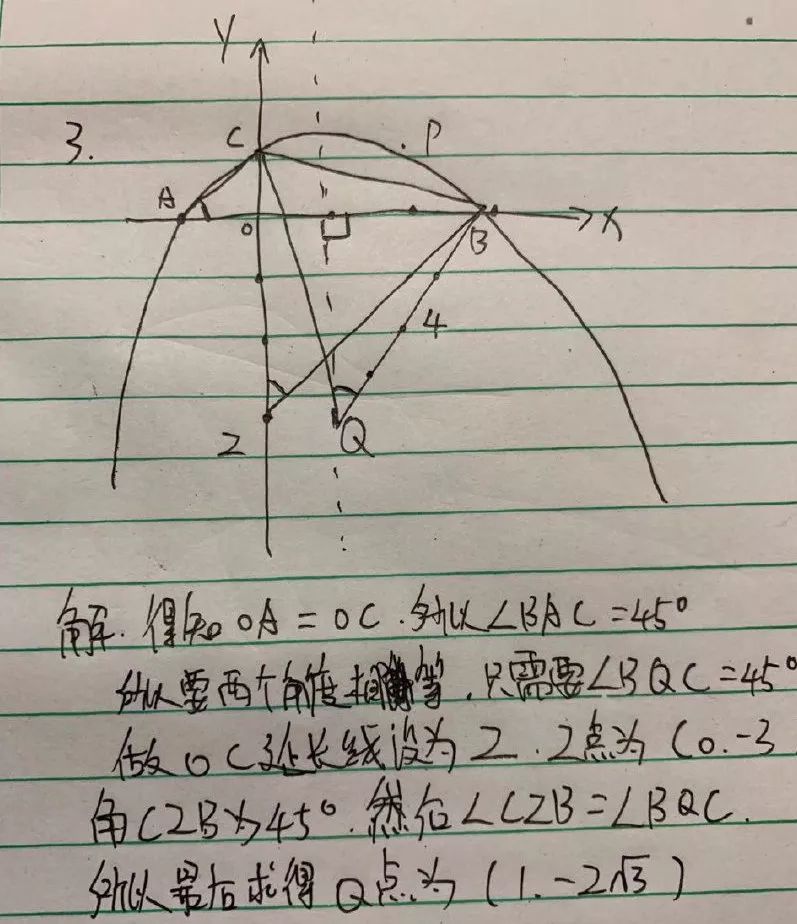 Y
3.
C
.P
A
O
B
X
4
Z
Q
解.得知OA=OC.所以∠BAC=45°
所以要两个角度相等.只需要∠BQC=45°
做OC延长线设为Z.Z点为(0.-3
角CZB为45°.然后∠CZB=∠BQC.
所以最后求得Q点为(1.-2√3)